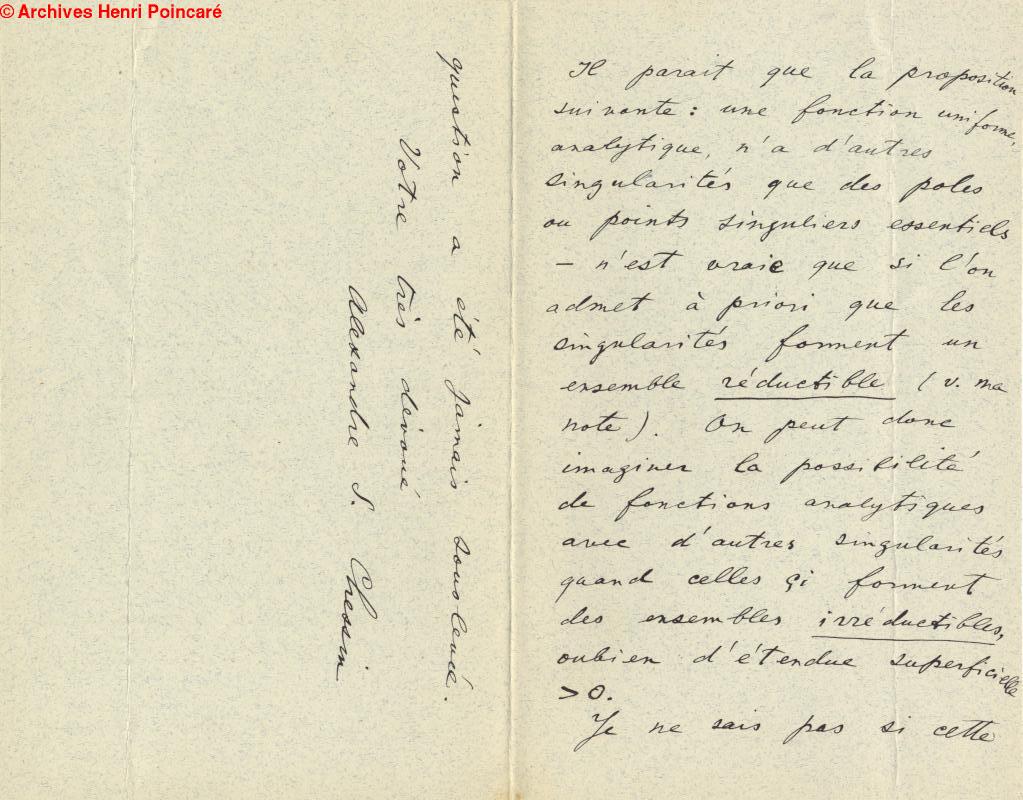 © Archives Henri Poincaré
Il parait que la proposition
suivante : une fonction uniforme,
analytique, n'a d'autres
singularités que des poles
ou points singuliers essentiels
— n'est vraie que si l'on
admet à priori que les
singularités forment un
ensemble réductible (v. ma
note). On peut donc
imaginer la possibilité
de fonctions analytiques
avec d'autres singularités
quand celles çi forment
des ensembles irréductibles,
oubien d'étendue superficielle
>0.
Je ne sais pas si cette
question a été jamais soulevée.
Votre très dévoué
Alexandre S. Chessin.